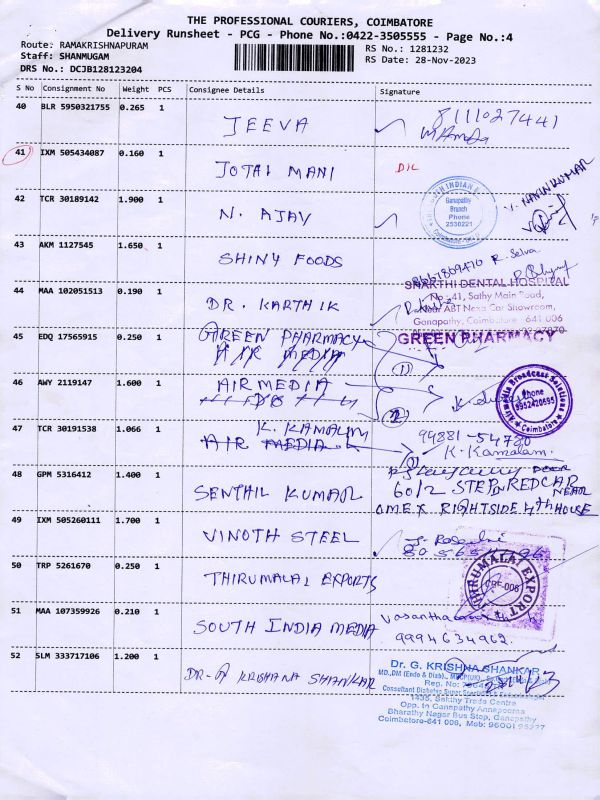 THE PROFESSIONAL COURIERS, COIMBATORE
Delivery Runsheet - PCG - Phone No.:0422-3505555 - Page No.:4
Route: RAMAKRISHNAPURAM
RS No.: 1281232
Staff: SHANMUGAM
RS Date: 28-Nov-2023
DRS No.: DCJB128123204
S No Consignment No Weight PCS Consignee Details Signature
40 BLR 5950321755 0.265 1
JEEVA
8111027441
41 IXM 505434087 0.160 1
JOTHI MANI
D/L
42 TCR 30189142 1.900 1
N. AJAY
INDIAN
Ganapathy
Branch
Phone
2530221
V. NAVINKUMAR
43 AKM 1127545 1.650 1
SHINY FOODS
R. Selva
44 MAA 102051513 0.190 1
DR. KARTHIK
DENTAL HOSPITAL
No. 41, Sathy Main Road,
Near ABT Nexa Car Showroom,
Ganapathy, Coimbatore - 641 006
45 EDQ 17565915 0.250 1
GREEN PHARMACY
AIR MEDIA
GREEN PHARMACY
(1)
46 AWY 2119147 1.600 1
AIRMEDIA
(2)
Airmedia Broadcast Solutions
Phone
9952420695
Coimbatore
47 TCR 30191538 1.066 1
K. KAMALAM
AIR MEDIA
99881-54780
K. Kamalam.
48 GPM 5316412 1.400 1
SENTHIL KUMAR
DOOR
60/2 STEP IN REDCAR
NEAR
OMEX RIGHTSIDE 4th HOUSE
49 IXM 505260111 1.700 1
VINOTH STEEL
50 TRP 5261670 0.250 1
THIRUMALAI EXPORTS
THIRUMALAI EXPORT
CBE-006
51 MAA 107359926 0.210 1
SOUTH INDIA MEDIA
9994634962.
52 SLM 333717106 1.200 1
DR-G KRISHANA SHANKAR
Dr. G. KRISHNA SHANKAR
MD.,DM (Endo & Diab).,
Reg. No:
Consultant Diabetes
1435, Sakthy Trade Centre
Opp. to Ganapathy Annapoorna
Bharathy Nagar Bus Stop, Ganapathy
Coimbatore-641 006, Mob: 96001 95227